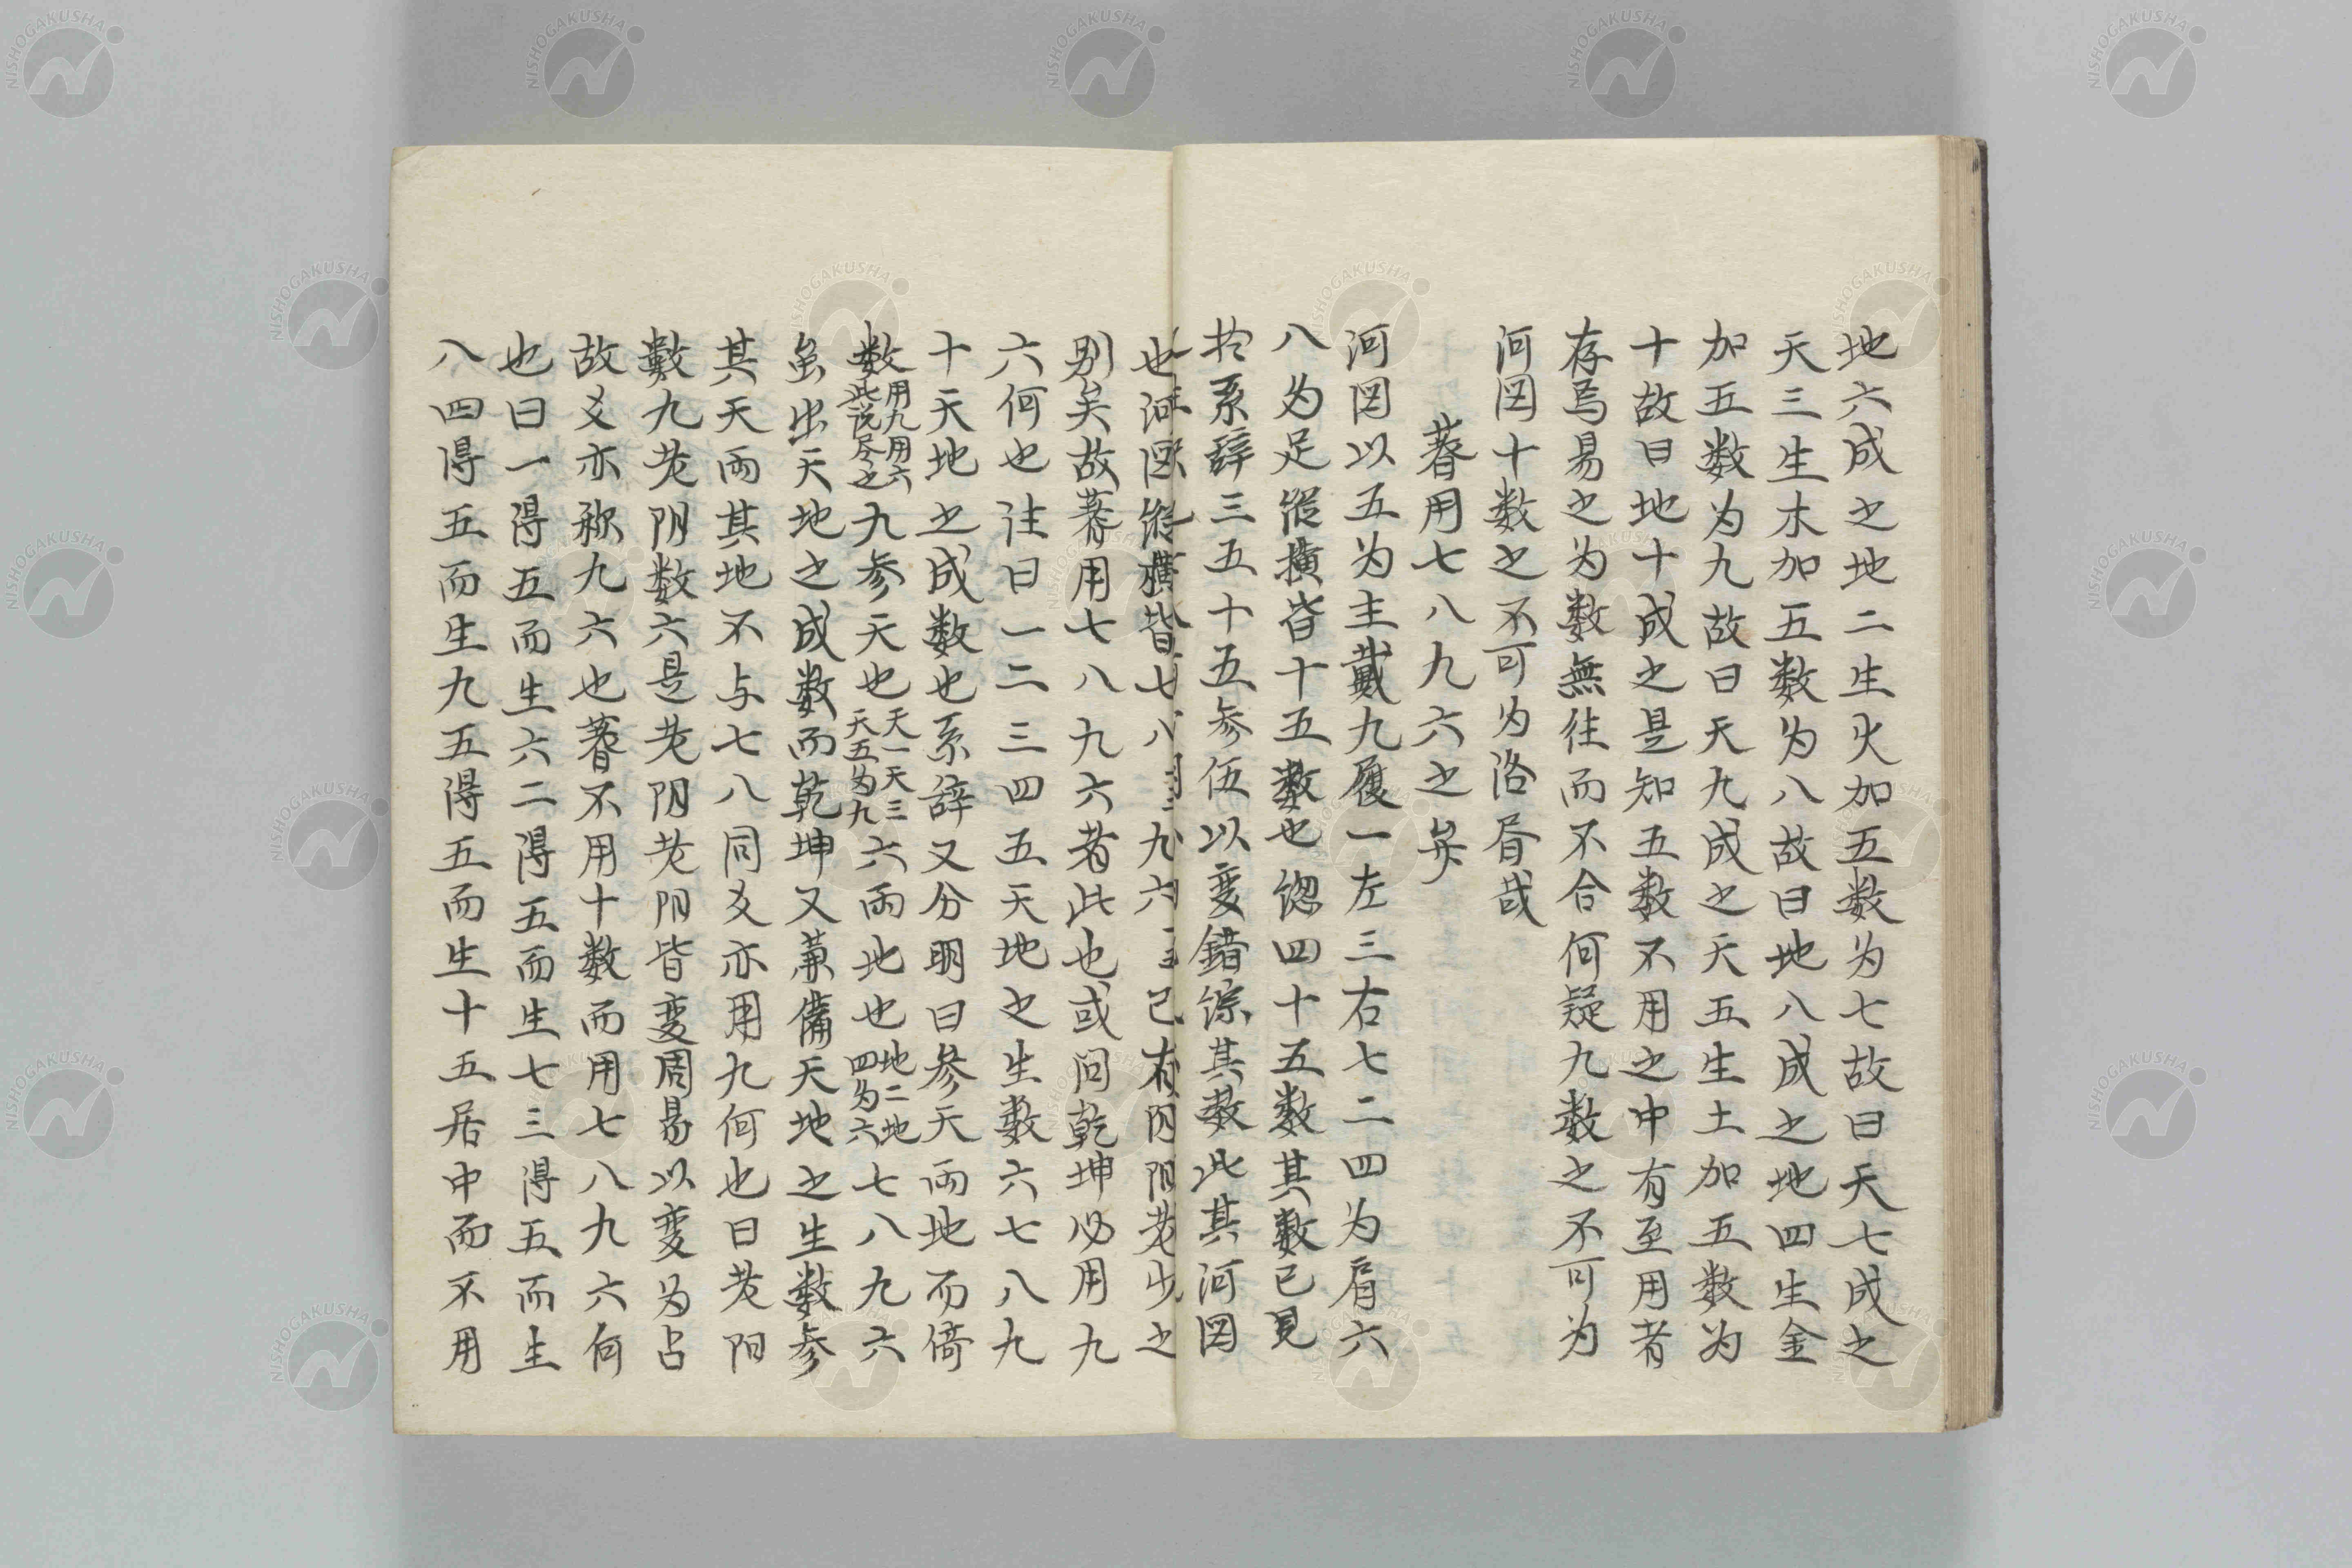 地六成之地二生火加五数为七故曰天七成之
天三生木加五数为八故曰地八成之地四生金
加五数为九故曰天九成之天五生土加五数为
十故曰地十成之是知五数不用之中有至用者
存焉易之为数無往而不合何疑九数之不可为
河図十数之不可为洛眉哉
蓍用七八九六之㢧
河図以五为主戴九履一左三右七二四为肩六
八为足縦横皆十五数也惣四十五数其数已見
於系辞三五十五参伍以変錯綜其数此其河図
也河図縦横皆七八九六已有阴阳老少之
别矣故蓍用七八九六者此也或问乾坤必用九
六何也注曰一二三四五天地之生数六七八九
十天地之成数也系辞又分明曰参天両地而倚
数用九用六此说尽之九参天也天一天三天五为九六両地也地二地四为六七八九六
虽出天地之成数而乾坤又兼備天地之生数参
其天而両其地不与七八同爻亦用九何也曰老阳
數九老阴数六是老阴老阳皆変周易以変为占
故爻亦称九六也蓍不用十数而用七八九六何
也曰一得五而生六二得五而生七三得五而生
八四得五而生九五得五而生十五居中而不用
NISHOGAKUSHA